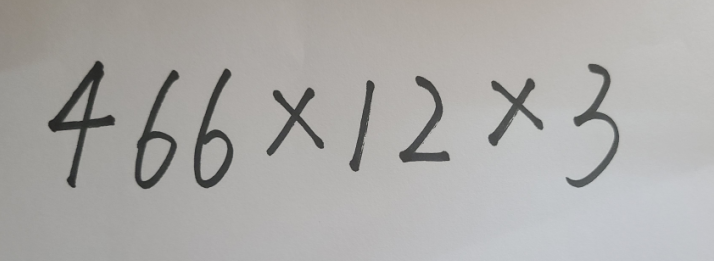 466×12×3